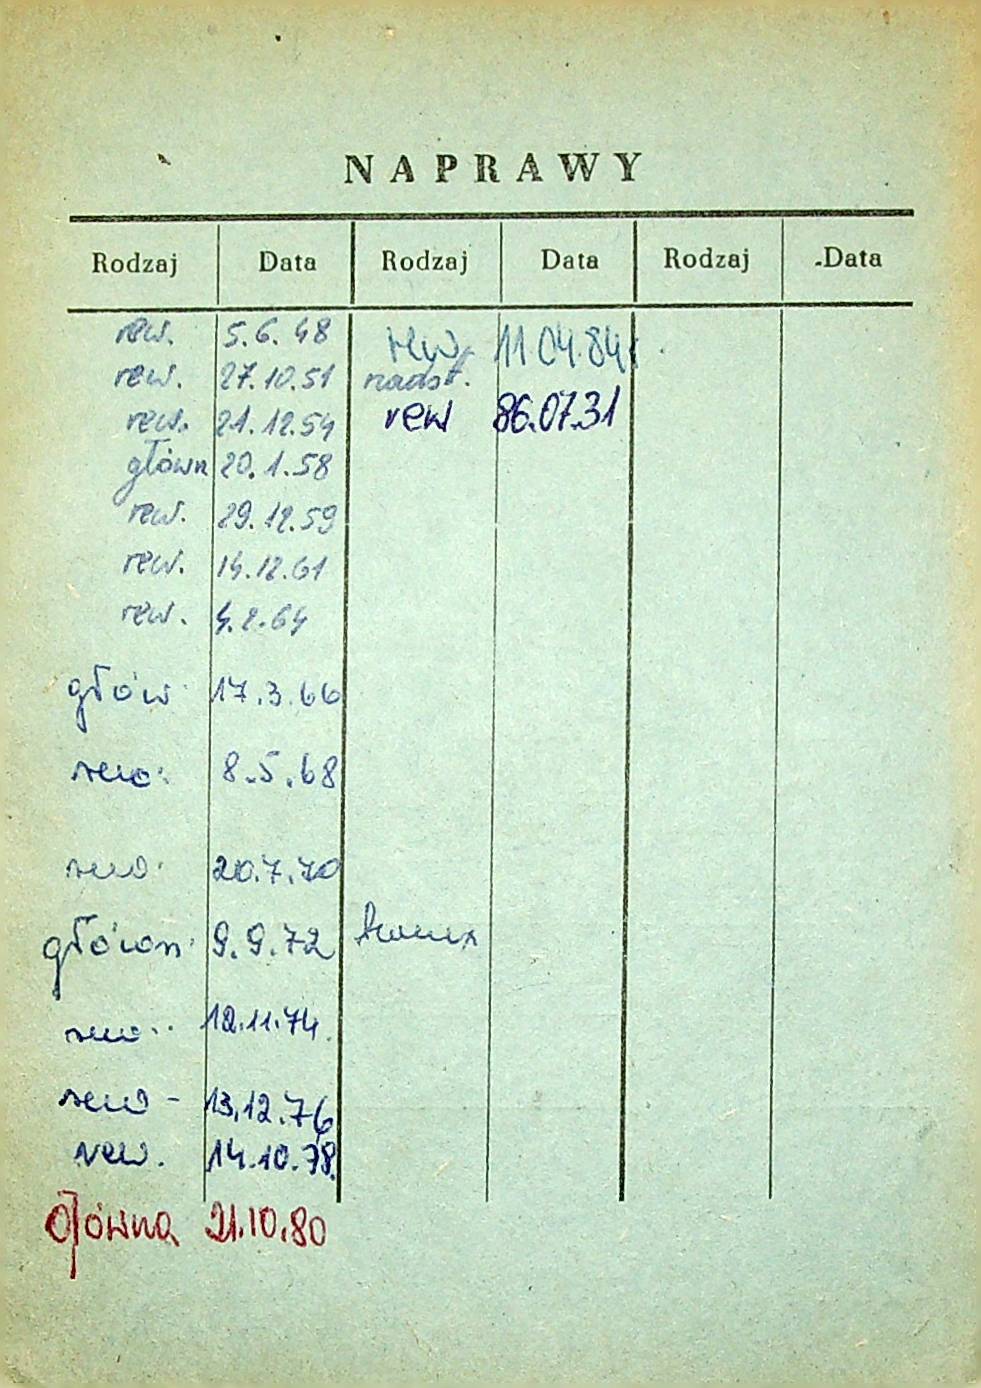 NAPRAWY
Rodzaj Data Rodzaj Data Rodzaj Data
rew. 5.6.48
rew. 27.10.51
rew. 21.12.54
główn 20.1.58
rew. 29.12.59
rew. 14.12.61
rew. 4.2.64
głów 17.3.66
rew. 8.5.68
rew. 20.7.70
główn. 9.9.72
rew. 12.11.74.
rew - 13.12.76
rew. 14.10.78.
Główna 21.10.80
rew. 11.04.84r.
nadst.
rew 86.07.31